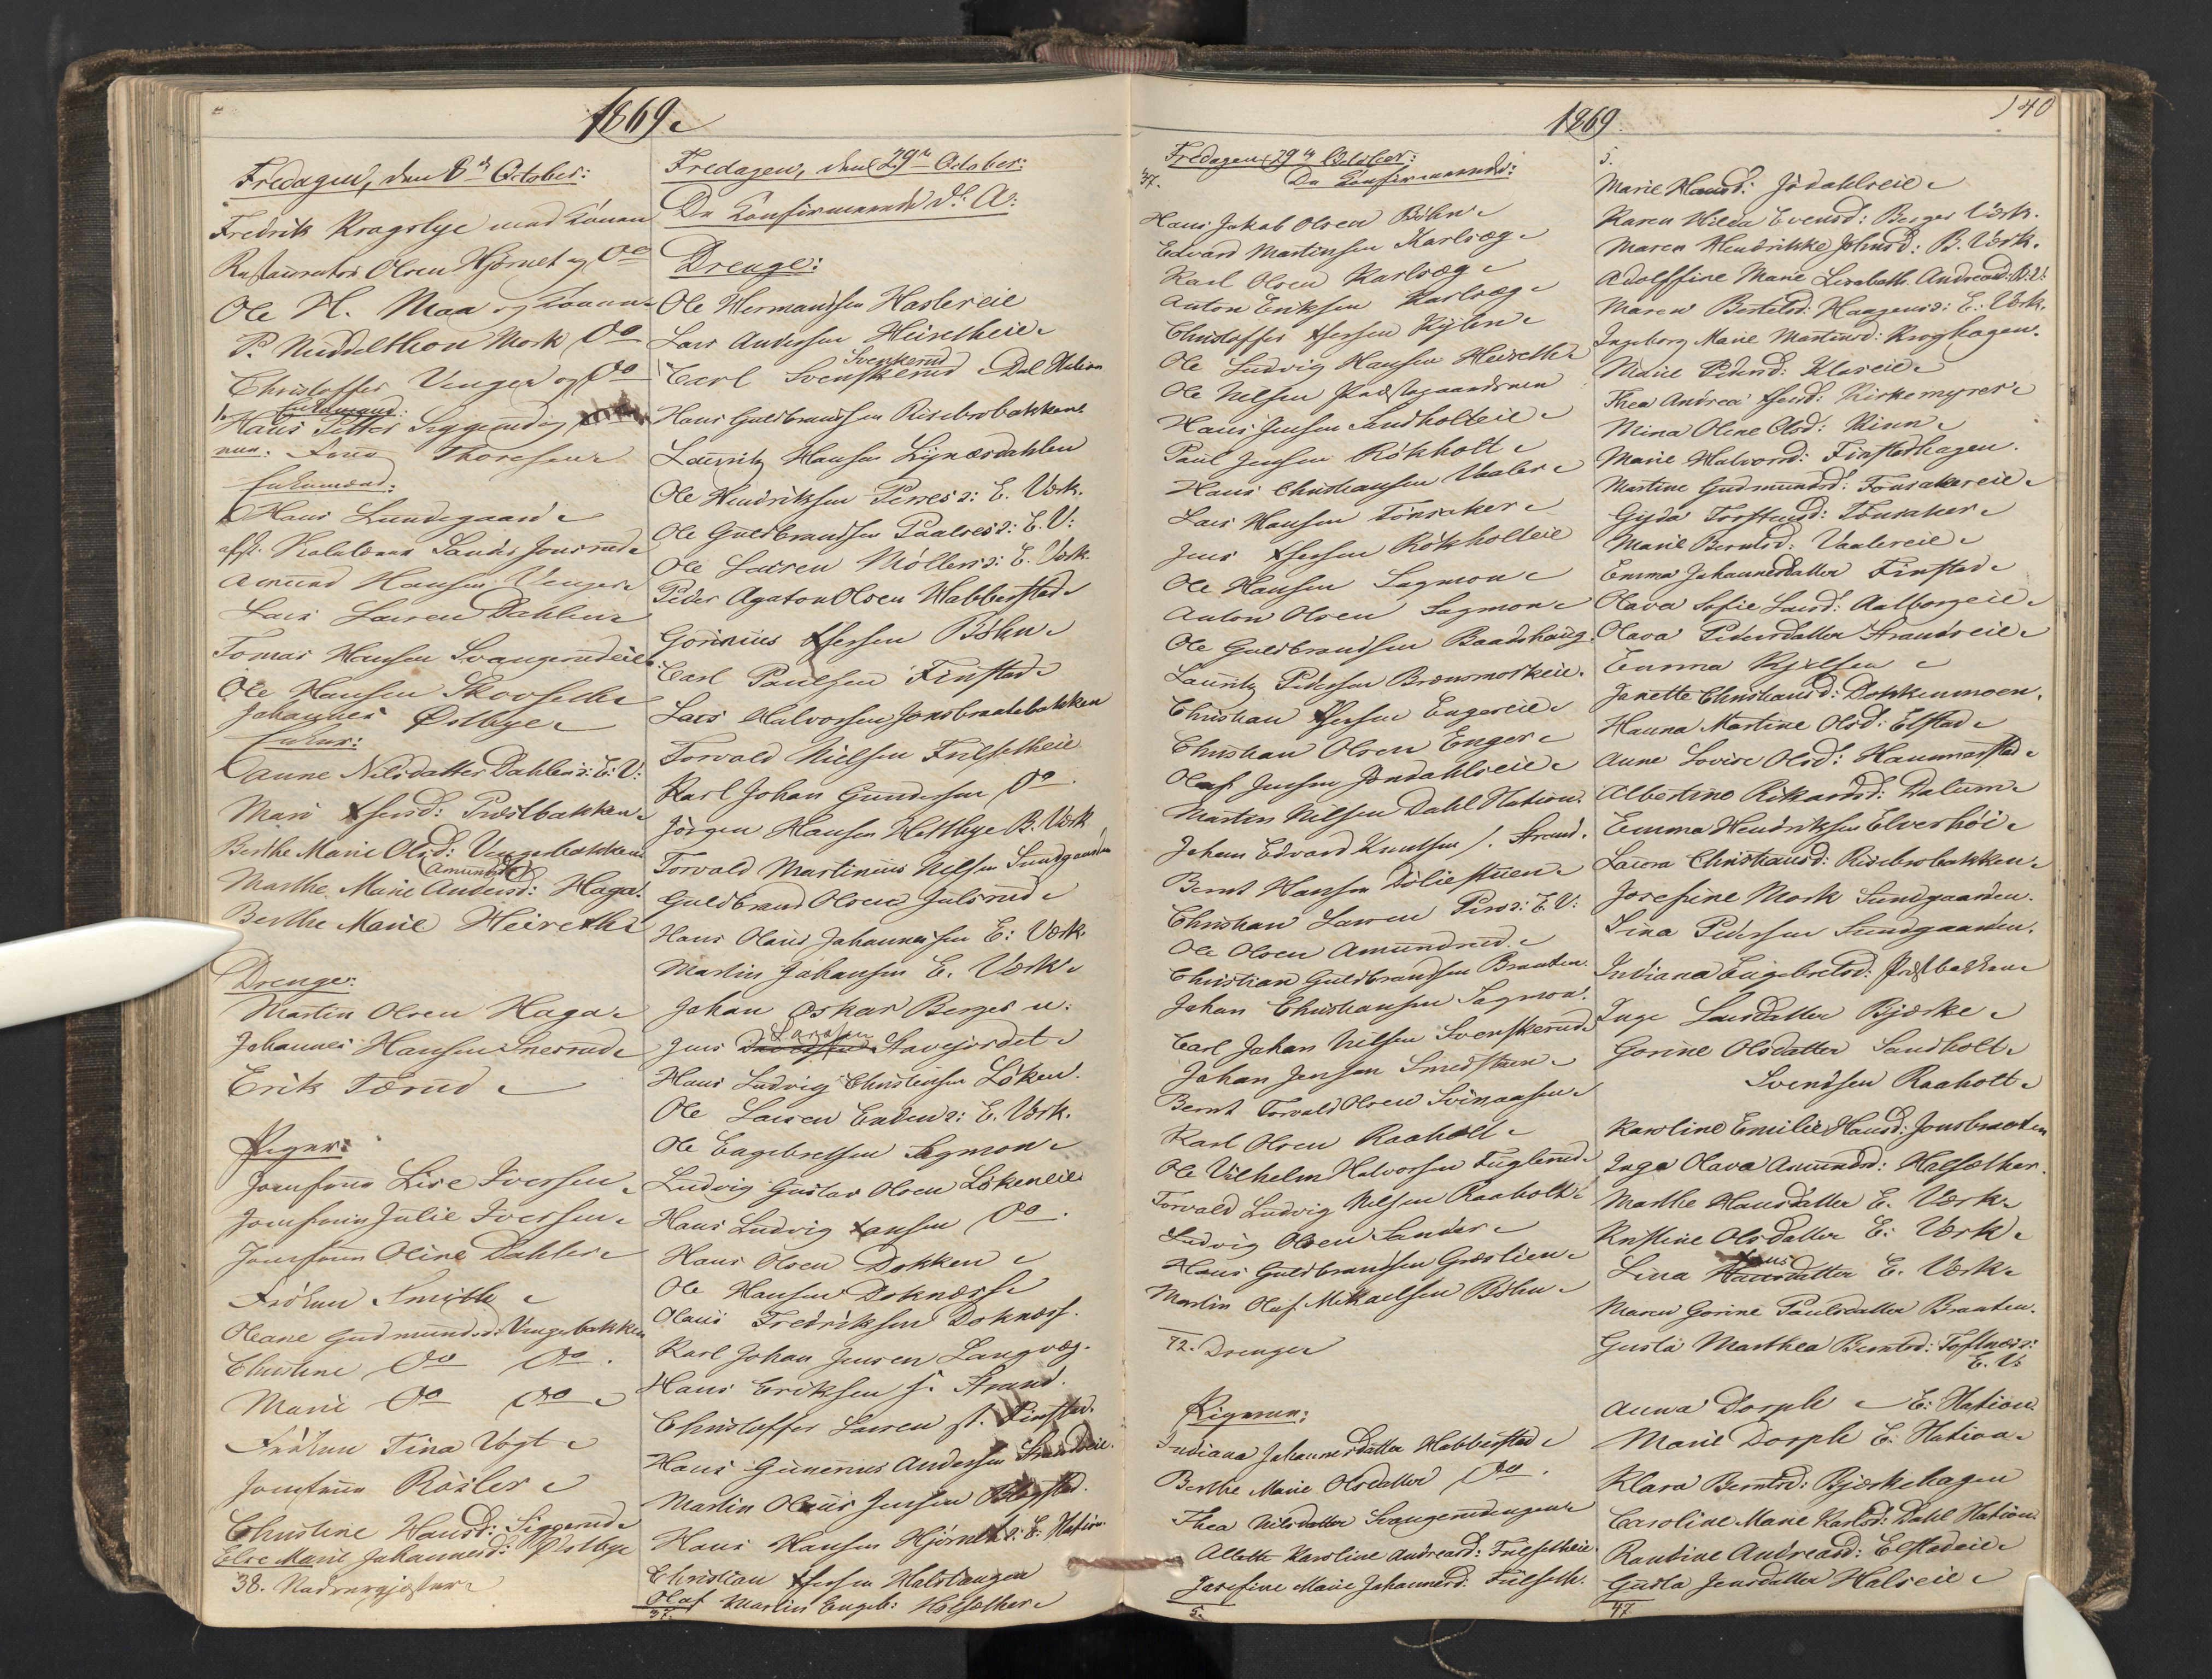 1869
Fredagen, den 8de October:
Fredrik Kragslye med Konen
Restauratør Olsen Hjørnet og Do
Ole H. Maa og Konen
P. Nuddelthon Mork Do
Christoffer Venger og Do
1. Enkemand:
Hans Petter Siggerud og
Thoresen
Enkemænd:
Hans Lundegaard
Lars Jonsrud
Amund Hansen Venger
Lars Larsen Dahlen
Tomas Hansen Svangerudeie
Ole Hansen Skovseth
Johannes Østbye
Enker:
Anne Nilsdatter Dahlen : E: V:
Mari Xfersd: Præstbakken
Berthe Marie Olsd: Vengerbakken
Amundsd
Marthe Marie Andersd: Haga
Berthe Marie Heireth
Drenge:
Martin Olsen Haga
Johannes Hansen Snesrud
Erik Tærud
Piger:
Jomfrue Lise Iversen
Jomfrue Julie Iversen
Jomfrue Oline Dahler
Frøken Smith
Oleane Gudmundsd: Vengerbakken
Christine Do Do
Marie Do Do
Frøken Tina Vogt
Jomfrue Røsler
Christine Hansd: Siggerud
Else Marie Johannesd: Østbye
38. Nadvergjæster
Fredagen, den 29de October:
De Konfirmerede d. A:
Drenge:
Ole Hermandsen Haslereie
Lars Andersen Heiretheie
Svenkerud
Carl Svenskerud Dal Station
Hans Guldbrandsen Risebrobakken
Lauritz Hansen Lynæsdahlen
Ole Hendriksen Perres: E. Værk.
Ole Guldbrandsen Paalses: E. V:
Ole Larsen Møllers: E. Værk.
Peder Agaton Olsen Habberstad
Gorinius Xfersen Bøhn
Carl Paulsen Finstad
Lars Halvorsen Jonsbraatebakken
Torvald Nielsen Fulsetheie
Karl Johan Gundersen Do
Jørgen Hansen Heltbye B. Værk
Torvald Martinius Nilsen Sundgaarden
Guldbrand Olsen Julsrud
Hans Olaus Johannessen E: Værk
Martin Johansen E. Værk
Johan Oskar Berger u:
Larsen
Jens Stavejordet
Hans Ludvig Christensen Løken
Ole Larsen Enden : E. Værk.
Ole Engebretsen Sagmon
Ludvig Gustav Olsen Løkeneie
Hans Ludvig Xansen Do
Hans Olsen Dokken
Ole Hansen Doknæss
Olaus Fredriksen Doknæss
Karl Johan Jensen Langvæg
Hans Eriksen s. Strand
Christoffer Larsen st. Finstad
Hans Gunerius Andersen Strandeie
Martin Olaus Jensen
Hans Hansen Hjørnet : E. Station
Christian Xfersen Halstangen
Olaf Martin Engeb: Holsæther
37.
1869
140
Fredagen 29de October:
De Konfirmerede:
37.
Hans Jakob Olsen Bøhn
Edvard Martinsen Karlsæg
Karl Olsen Karlsæg
Anton Eriksen Karlsæg
Christoffer Xfersen Rylen
Ole Ludvig Hansen Heireth
Ole Nilsen Præstegaardsmoen
Hans Jensen Sandholteie
Paul Jensen Røkholt
Hans Christiansen Vaaler
Lars Hansen Tønsaker
Jens Xfersen Røkholteie
Ole Hansen Sagmon
Anton Olsen Sagmon
Ole Guldbrandsen Baadshaug
Lauritz Pedersen Brænsmorkeie
Christian Xfersen Engereie
Christian Olsen Enger
Olaf Jensen Jøndahlseie
Martin Nilsen Dahl Station
Johan Edvard Knutsen s. Strand
Bernt Hansen Doliestuen
Christian Larsen Pers: E. V:
Ole Olsen Amundrud
Christian Guldbrandsen Braaten
Johan Christiansen Sagmon
Carl Johan Nilsen Svenskerud
Johan Jensen Smedstuen
Bernt Torvald Olsen Svinaasen
Karl Olsen Raaholt
Ole Vilhelm Halvorsen Fuglerud
Torvald Ludvig Nilsen Raaholt
Ludvig Olsen Sander
Hans Guldbrandsen Græslien
Martin Olaf Mikaelsen Bøhn
72. Drenger
Pigerne:
Indiana Johannesdatter Habberstad
Berthe Marie Olsdatter Do
Thea Nilsdatter Svangerudengen
Allette Karoline Andreasd: Fulsetheie
Josefine Marie Johannesd: Fulseth
5.
5.
Marie Hansd: Jødahlseie
Karen Hilda Evensd: Berger Værk.
Maren Hendrikke Johnsd: B. Værk.
Adolffine Marie Lisabeth Andreasd: B. V.
Maren Bertelsd: Haagens: E. Værk.
Ingeborg Marie Martinsd: Kroghagen
Marie Pedersd: Klæseie
Thea Andrea Xfersd: Kirkemyrer
Mina Oline Olsd: Minn
Marie Halvorsd: Finstadhagen
Martine Gudmundsd: Tønsakereie
Gyda Torstensd: Tønsaker
Marie Berntsd: Vaalereie
Emma Johannesdatter Finstad
Olava Sofie Larsd: Aalborgeie
Olava Pedersdatter Strandseie
Emma Kjelsen
Janette Christiansd: Dokkenmoen
Hanna Martine Olsd: Elstad
Anne Lovise Olsd: Hammerstad
Albertine Rikardsd: Dalum
Emma Hendriksen Elverhøi
Laura Christiansd: Risebrobakken
Josefine Mork Sundgaarden
Lina Pedersen Sundgaarden
Indiana Engebretsd: Præstbakken
Inge Larsdatter Bjørke
Gorine Olsdatter Sandholt
Svendsen Raaholt
Karoline Emilie Hansd: Jonsbraaten
Inga Olava Amundsd: Helsæther
Marthe Hansdatter E. Værk
Kristine Olsdatter E: Værk
Lina datter E. Værk
Maren Gorine Paulsdatter Braaten
Gusta Marthea Berntsd: Toftnæs:
E. V:
Anna Dorph E: Station
Marie Dorph E. Station
Klara Berntsd: Bjørkehagen
Caroline Marie Karlsd: Dahl Station
Randine Andreasd: Elstadeie
Gusta Jensdatter Halseie
47